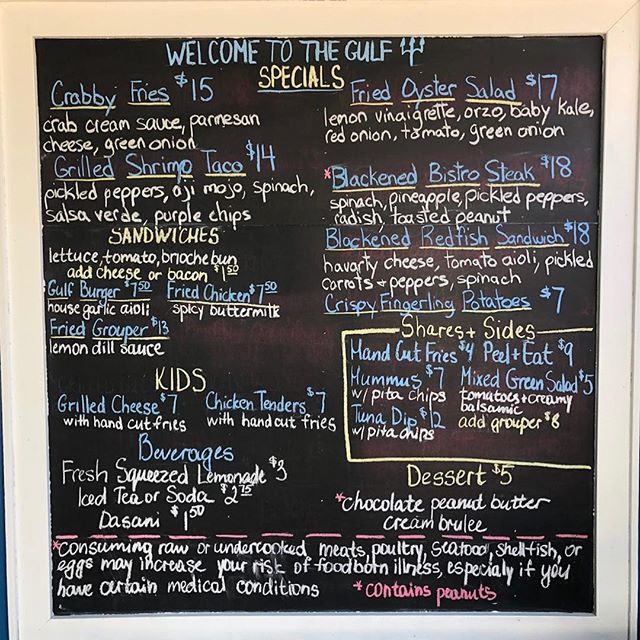 WELCOME TO THE GULF
SPECIALS
Crabby Fries $15
crab cream sauce, parmesan
cheese, green onion
Grilled Shrimp Taco $14
pickled peppers, aji mojo, spinach,
salsa verde, purple chips
SANDWICHES
lettuce, tomato, brioche bun
add cheese or bacon $1.50
Gulf Burger $7.50 Fried Chicken $7.50
house garlic aioli spicy buttermilk
Fried Grouper $13
lemon dill sauce
KIDS
Grilled Cheese $7 Chicken Tenders $7
with hand cut fries with hand cut fries
Beverages
Fresh Squeezed Lemonade $3
Iced Tea or Soda $2.75
Dasani $1.50
Fried Oyster Salad $17
lemon vinaigrette, orzo, baby kale,
red onion, tomato, green onion
*Blackened Bistro Steak $18
spinach, pineapple, pickled peppers,
radish, toasted peanut
Blackened Redfish Sandwich $18
havarty cheese, tomato aioli, pickled
carrots + peppers, spinach
Crispy Fingerling Potatoes $7
Shares + Sides
Hand Cut Fries $4 Peel + Eat $9
Hummus $7 Mixed Green Salad $5
w/ pita chips tomatoes + creamy
balsamic
Tuna Dip $12 add grouper $8
w/ pita chips
Dessert $5
*chocolate peanut butter
cream brulee
*consuming raw or undercooked meats, poultry, seafood, shellfish, or
eggs may increase your risk of foodborn illness, especialy if you
have certain medical conditions *contains peanuts